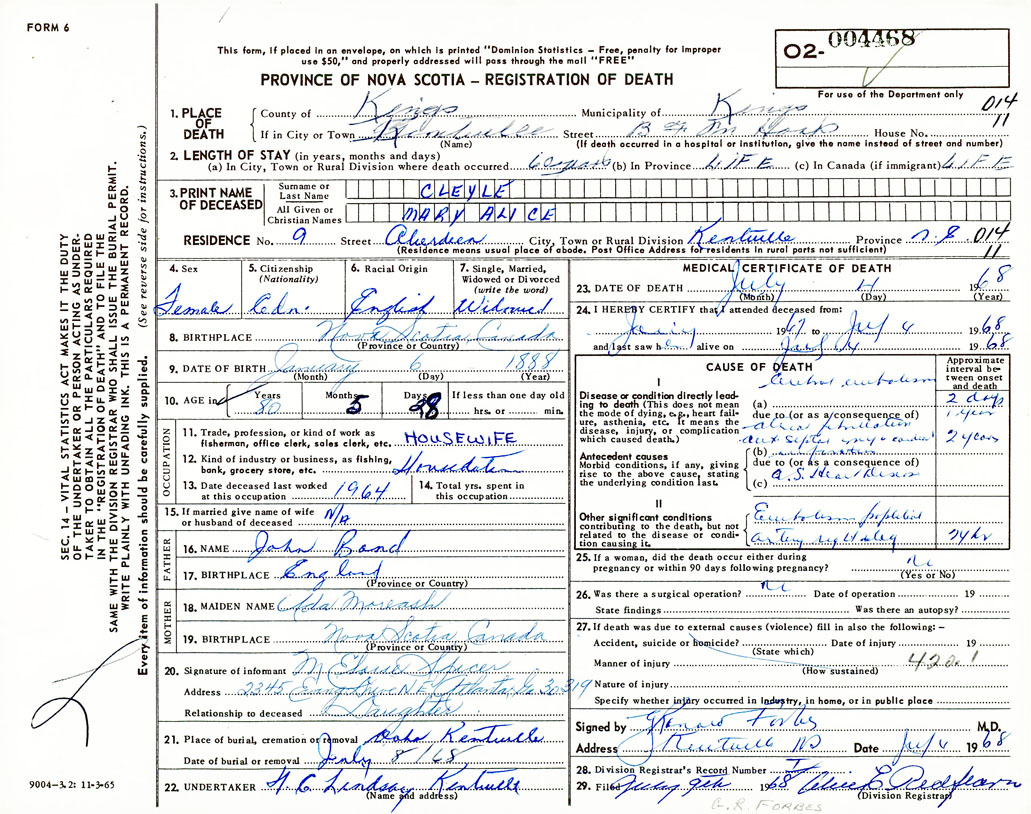 FORM 6
O2- 004468
This form, if placed in an envelope, on which is printed "Dominion Statistics – Free, penalty for improper
use $50," and properly addressed will pass through the mail "FREE"
PROVINCE OF NOVA SCOTIA – REGISTRATION OF DEATH
For use of the Department only
014
11
1. PLACE OF DEATH
County of Kings Municipality of Kings
If in City or Town Kentville Street B & M Hosp House No.
(Name) (If death occurred in a hospital or institution, give the name instead of street and number)
2. LENGTH OF STAY (in years, months and days)
(a) In City, Town or Rural Division where death occurred 60 years (b) In Province LIFE (c) In Canada (if immigrant) LIFE
3. PRINT NAME OF DECEASED
Surname or Last Name CLEYLE
All Given or Christian Names MARY ALICE
RESIDENCE No. 9 Street Aberdeen City, Town or Rural Division Kentville Province N.S 014
(Residence means usual place of abode. Post Office Address for residents in rural parts not sufficient) 11
4. Sex Female
5. Citizenship (Nationality) Cdn.
6. Racial Origin English
7. Single, Married, Widowed or Divorced (write the word) Widowed
8. BIRTHPLACE Nova Scotia Canada
(Province or Country)
9. DATE OF BIRTH January 6 1888
(Month) (Day) (Year)
10. AGE in Years 80 Months 5 Days 28 If less than one day old
hrs. or min.
OCCUPATION
11. Trade, profession, or kind of work as
fisherman, office clerk, sales clerk, etc. HOUSEWIFE
12. Kind of industry or business, as fishing,
bank, grocery store, etc.
13. Date deceased last worked
at this occupation 1964
14. Total yrs. spent in
this occupation
15. If married give name of wife
or husband of deceased N/A
FATHER
16. NAME John Bond
17. BIRTHPLACE England
(Province or Country)
MOTHER
18. MAIDEN NAME Ada Moreash
19. BIRTHPLACE Nova Scotia Canada
(Province or Country)
20. Signature of informant M Elsie Spicer
Address 2345 N.E. Atlanta, Ga. 30319
Relationship to deceased Daughter
21. Place of burial, cremation or removal Oaks Kentville
Date of burial or removal July 8/68
22. UNDERTAKER H. C. Lindsay Kentville
(Name and address)
MEDICAL CERTIFICATE OF DEATH
23. DATE OF DEATH July 4 1968
(Month) (Day) (Year)
24. I HEREBY CERTIFY that I attended deceased from:
1967 to July 4 1968
and last saw her alive on July 4 1968
CAUSE OF DEATH
Approximate interval between onset and death
I
Disease or condition directly leading to death (This does not mean
the mode of dying, e.g., heart failure, asthenia, etc. It means the
disease, injury, or complication
which caused death.)
(a) Cerebral embolism 2 days
due to (or as a consequence of)
atrial fibrillation 1 year
2 years
Antecedent causes
Morbid conditions, if any, giving
rise to the above cause, stating
the underlying condition last.
(b)
due to (or as a consequence of)
(c) A.S. Heart Disease
II
Other significant conditions
contributing to the death, but not
related to the disease or condition causing it.
Embolism popliteal
artery 24 hr
25. If a woman, did the death occur either during
pregnancy or within 90 days following pregnancy? No
(Yes or No)
26. Was there a surgical operation? No Date of operation 19
State findings Was there an autopsy?
27. If death was due to external causes (violence) fill in also the following: –
Accident, suicide or homicide? Date of injury 19
(State which)
Manner of injury 420.1
(How sustained)
Nature of injury
Specify whether injury occurred in Industry, in home, or in public place
Signed by Forbes M.D.
Address Kentville NS Date July 4 1968
28. Division Registrar's Record Number
29. Filed July 9th 1968 Alice E. Redfearn
(Division Registrar)
G. R. FORBES
SEC. 14 – VITAL STATISTICS ACT MAKES IT THE DUTY
OF THE UNDERTAKER OR PERSON ACTING AS UNDERTAKER
TO OBTAIN ALL THE PARTICULARS REQUIRED
IN THE "REGISTRATION OF DEATH" AND TO FILE THE
SAME WITH THE DIVISION REGISTRAR WHO SHALL ISSUE THE BURIAL PERMIT.
WRITE PLAINLY WITH UNFADING INK. THIS IS A PERMANENT RECORD.
Every item of information should be carefully supplied. (See reverse side for instructions.)
9004–3.2: 11-3-65